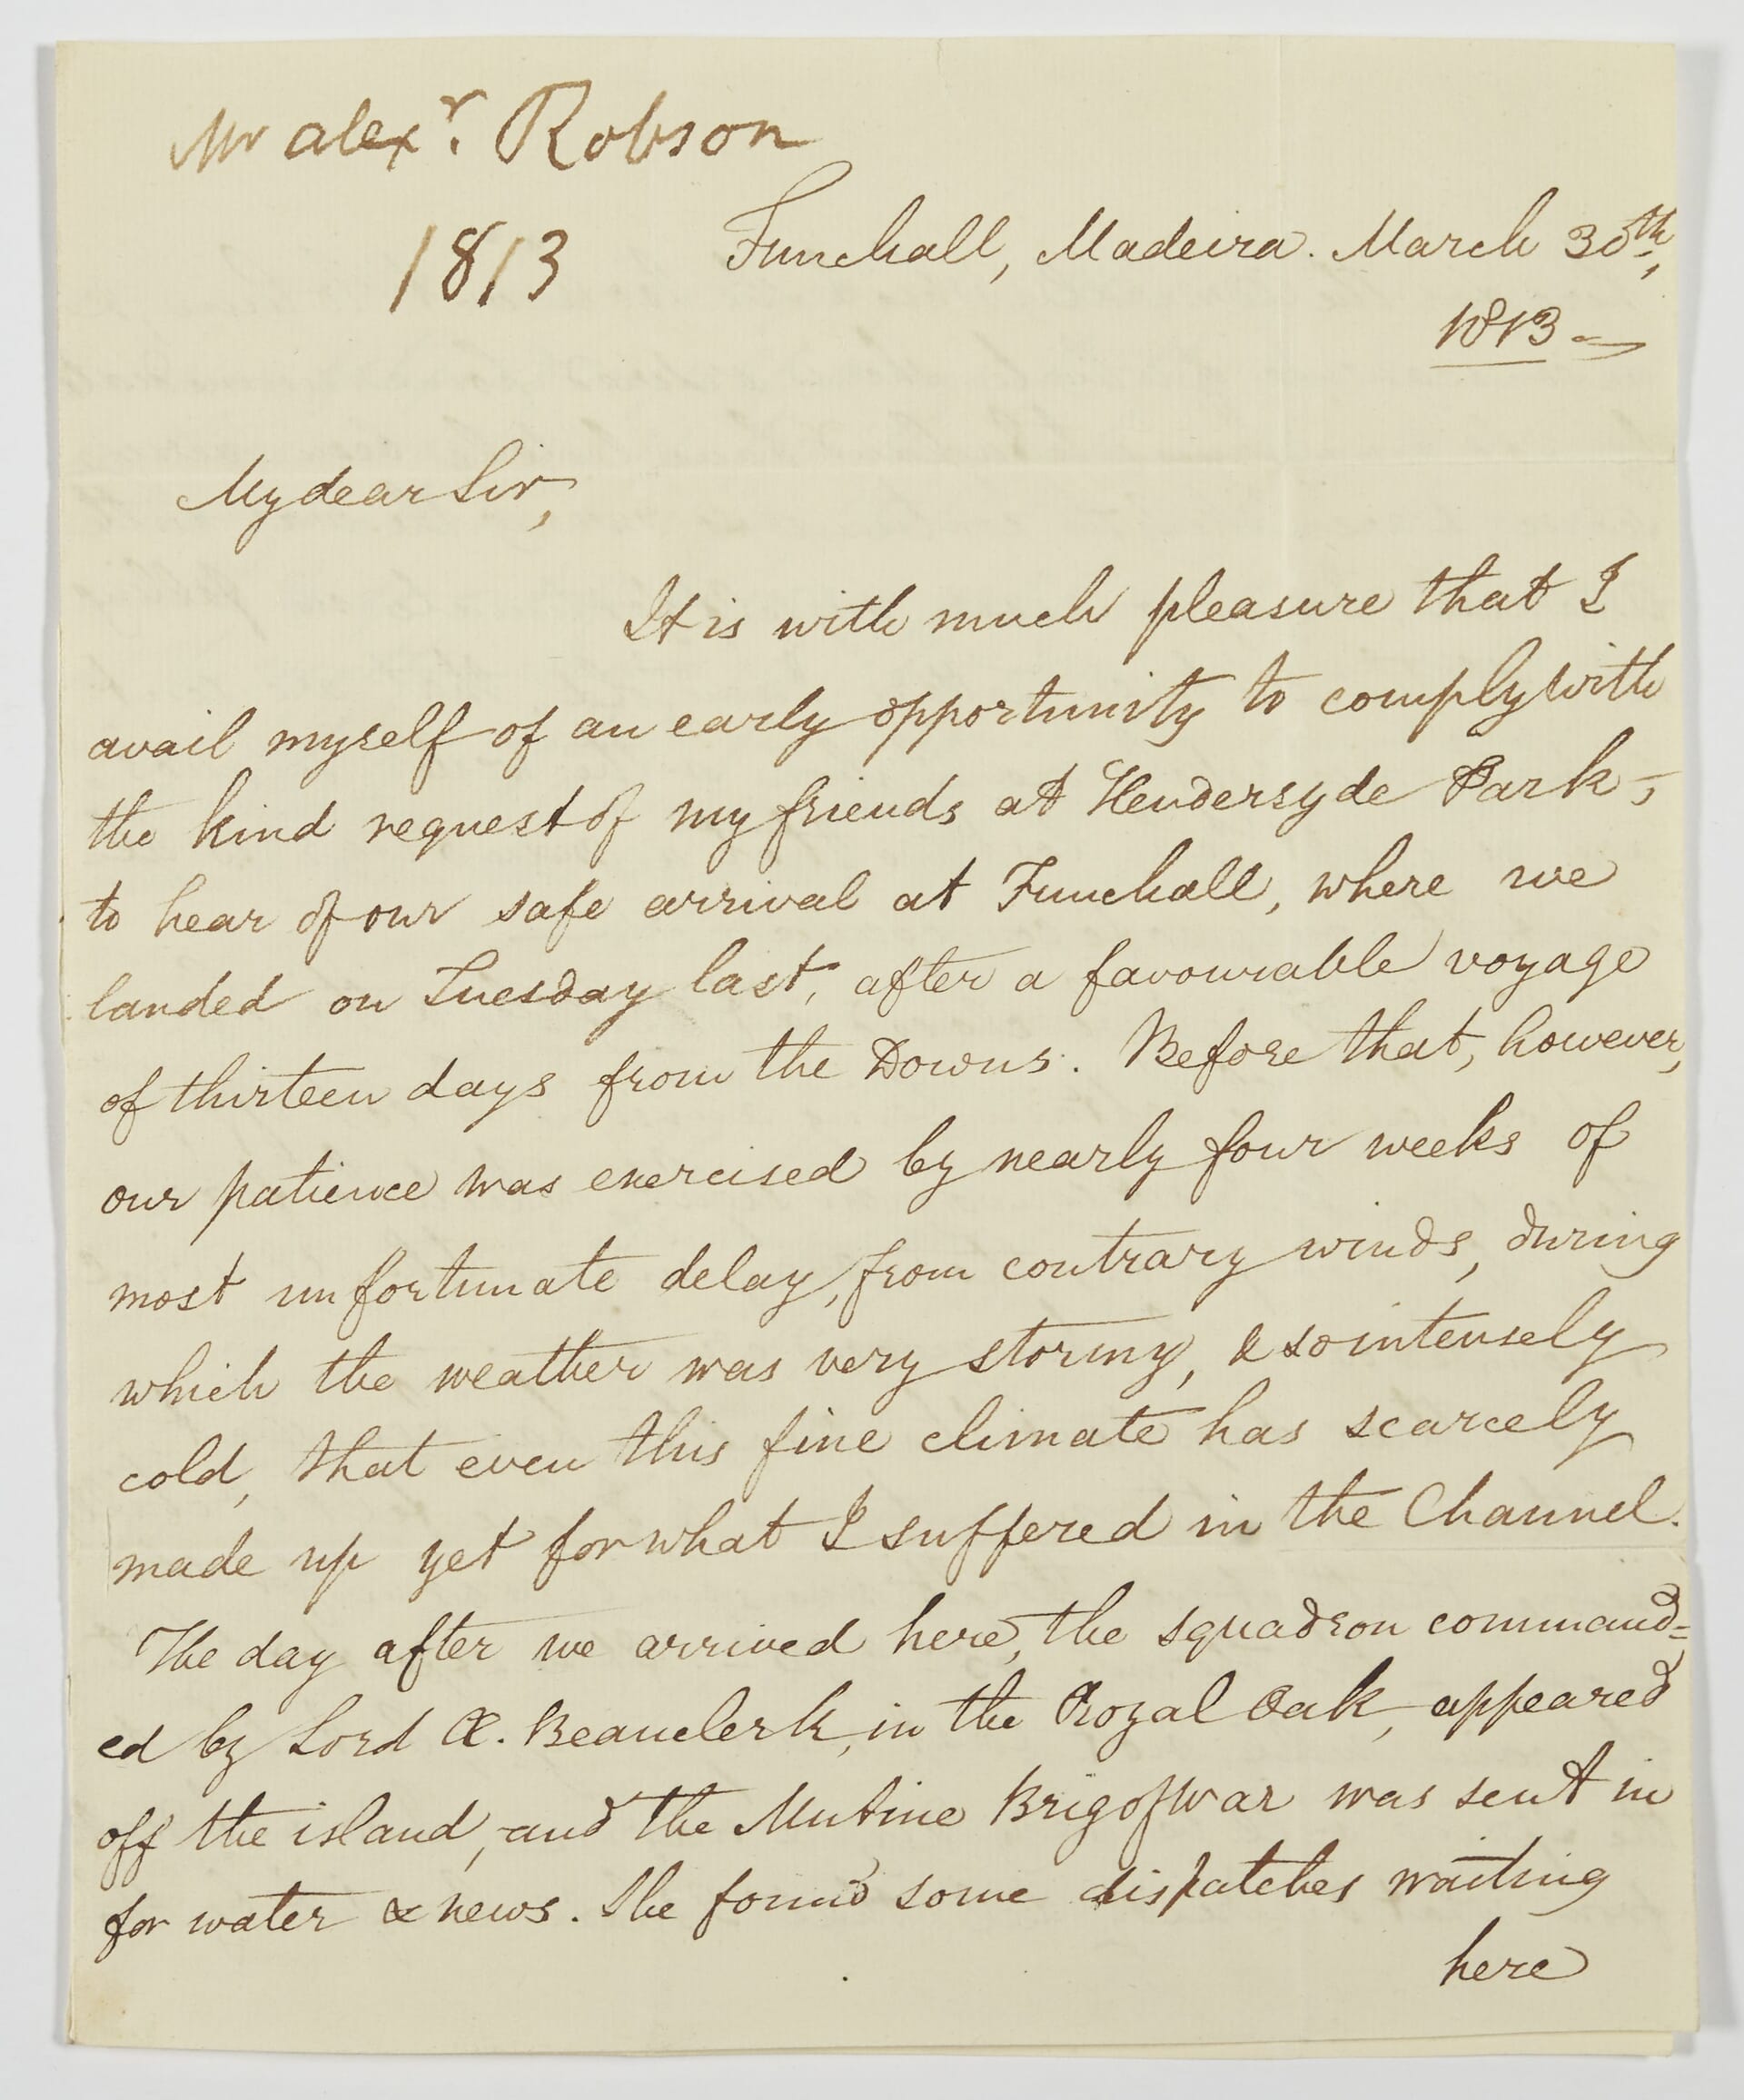 Mr alexr. Robson
1813
Funchall, Madeira. March 30th,
1813
My dear Sir,
It is with much pleasure that I
avail myself of an early opportunity to comply with
the kind request of my friends at Hendersyde Park,
to hear of our safe arrival at Funchall, where we
landed on Tuesday last, after a favourable voyage
of thirteen days from the Downs. Before that, however,
our patience was exercised by nearly four weeks of
most unfortunate delay, from contrary winds, during
which the weather was very stormy, & so intensely
cold, that even this fine climate has scarcely
made up yet for what I suffered in the Channel.
The day after we arrived here, the squadron command=
ed by Lord A. Beauclerk, in the Royal Oak, appeared
off the island, and the Mutine Brig of War was sent in
for water & news. She found some dispatches waiting
here